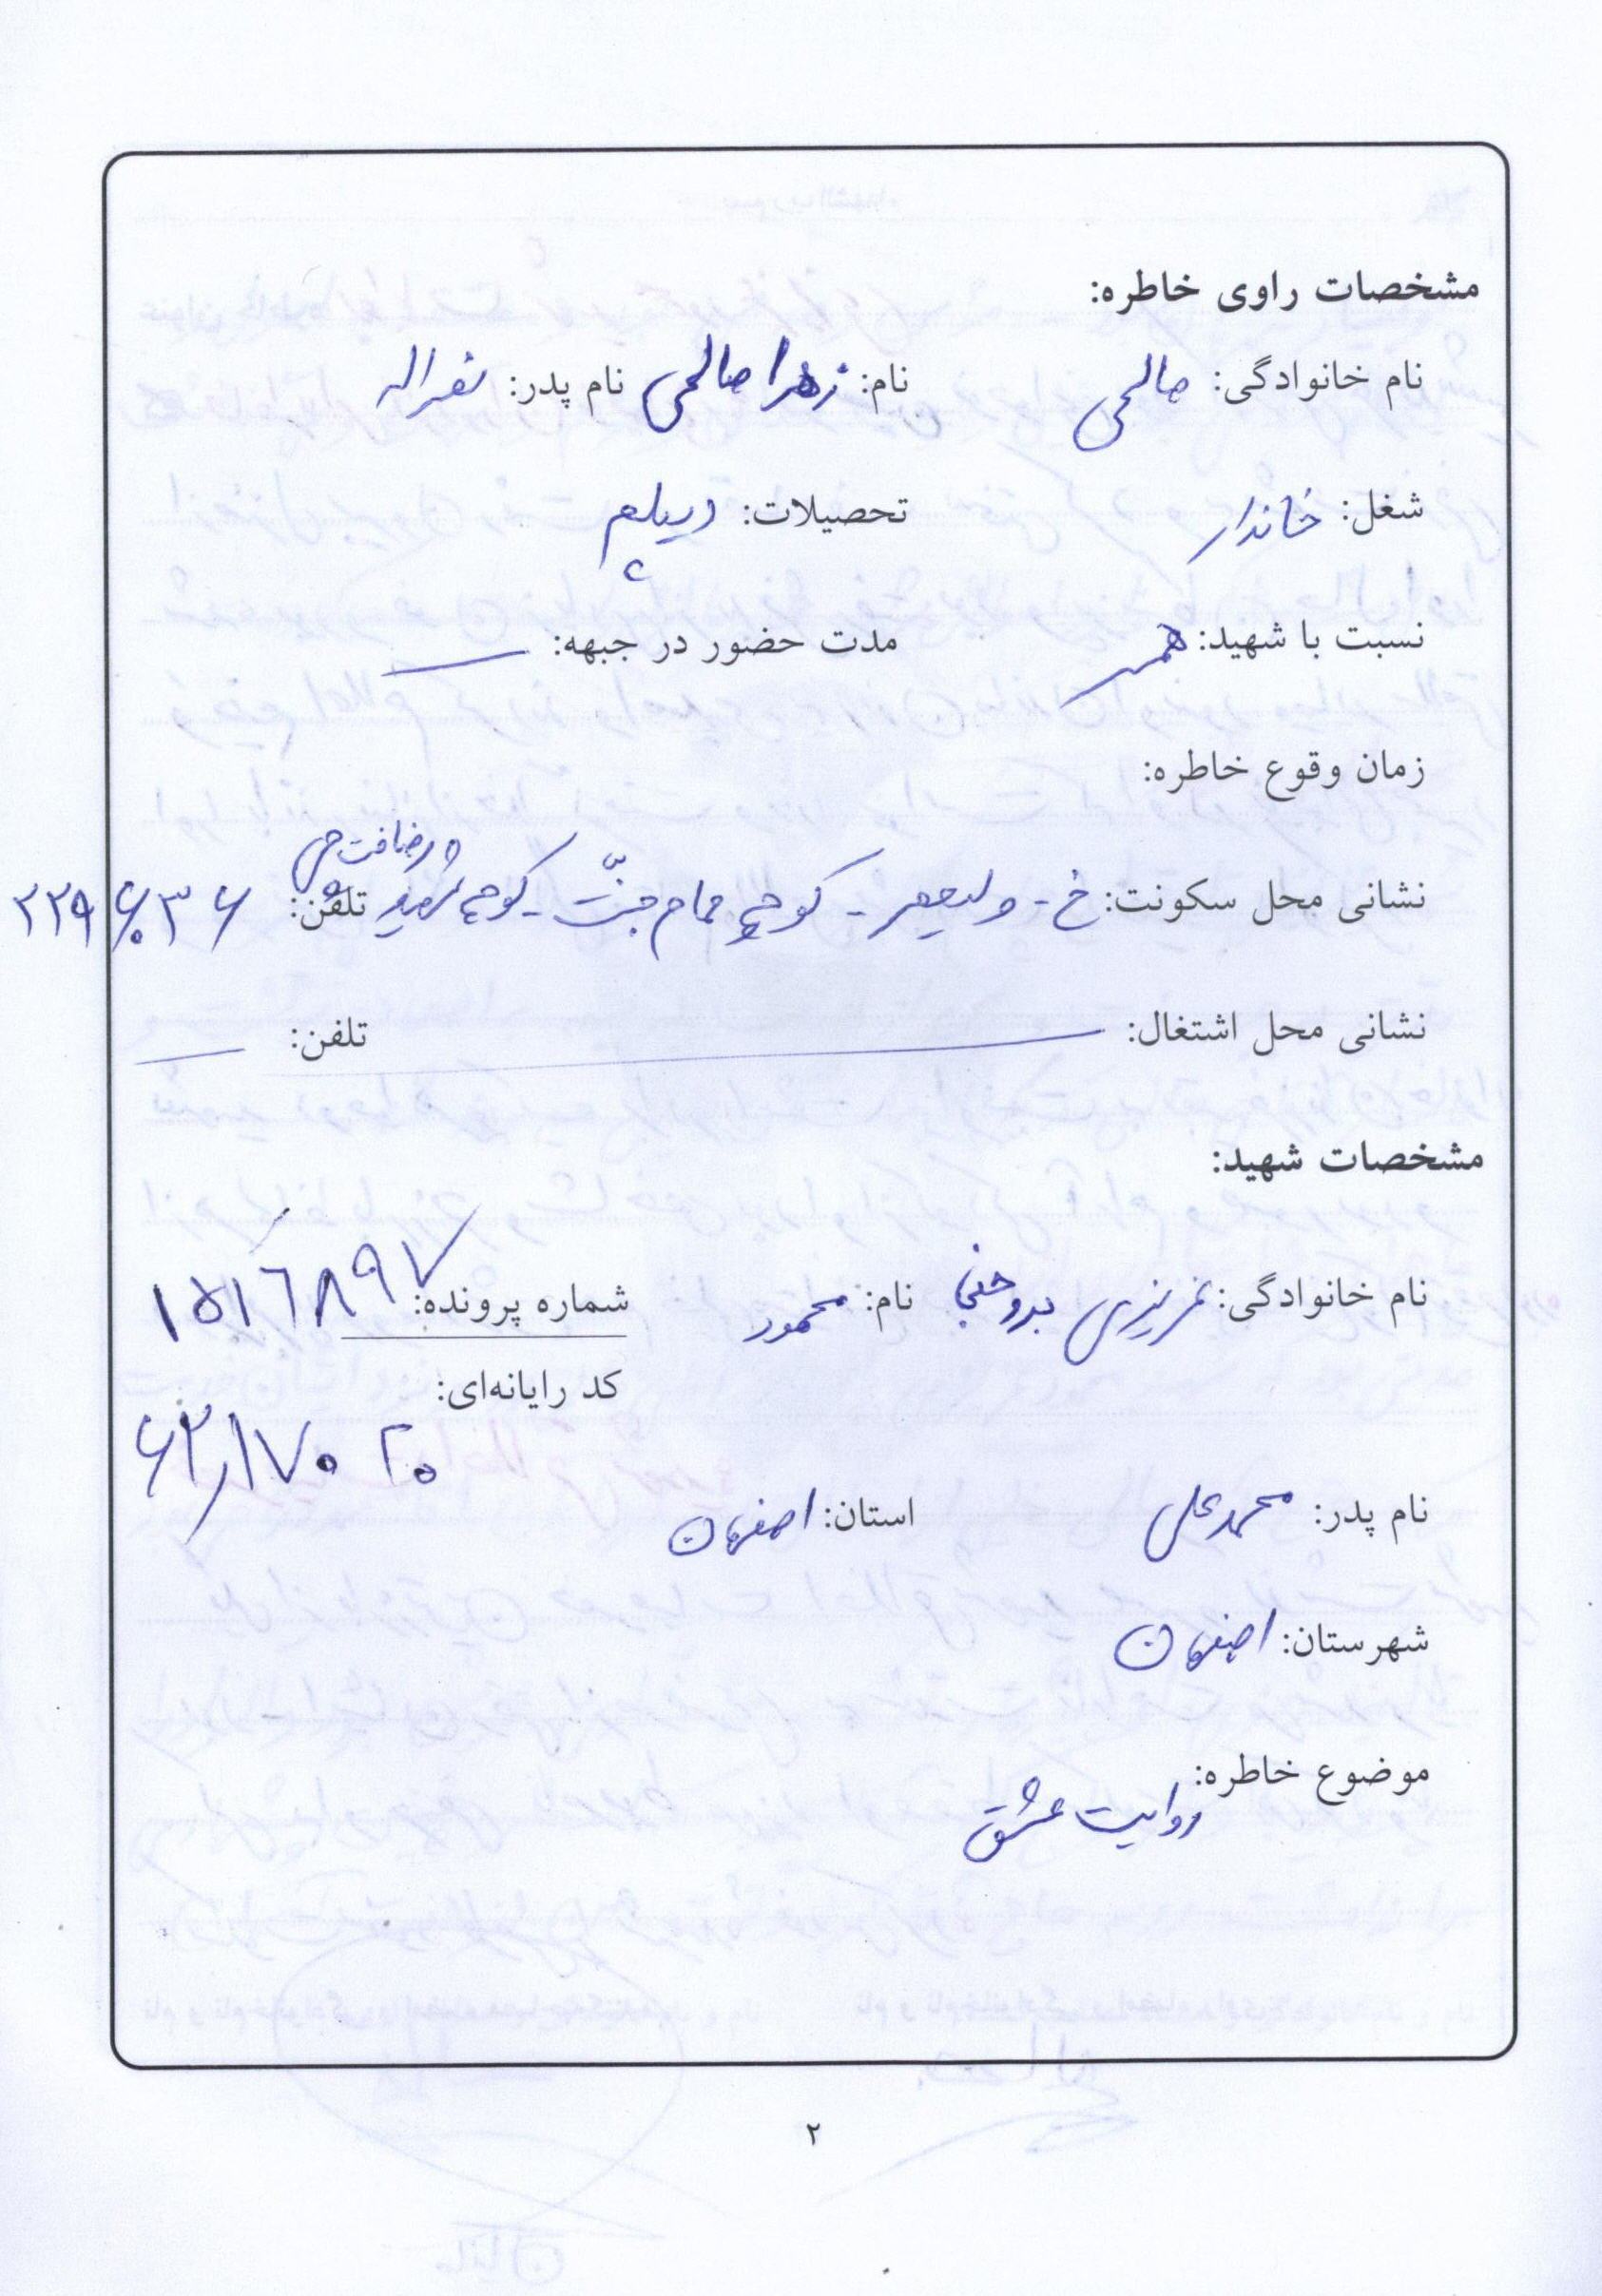 مشخصات راوی خاطره:
نام خانوادگی: صالحی نام: زهرا صالحی نام پدر: نصراله
شغل: خاندار تحصیلات: دیپلم
نسبت با شهید: همسر مدت حضور در جبهه: ـ
زمان وقوع خاطره:
نشانی محل سکونت: خ - ولیعصر - کوچه حمام جنّت - کوچه شهید تلفن: ۲۲۹۶۰۳۶
نشانی محل اشتغال: ـ تلفن: ـ
مشخصات شهید:
نام خانوادگی: نام: محمود شماره پرونده: ۱۵۱۶۸۹۷
کد رایانه‌ای:
نام پدر: محمدعلی استان: اصفهان
شهرستان: اصفهان
موضوع خاطره:
روایت عشق
۲